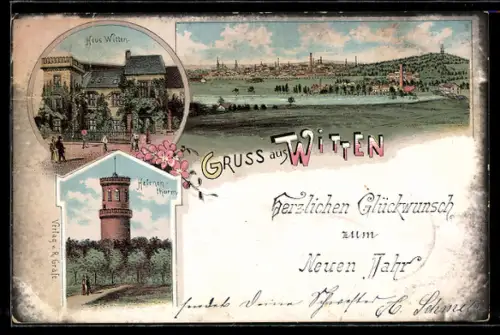 Haus Witten
GRUSS aus WITTEN
Helenen-
thurm
Verlag v.
Herzlichen Glückwunsch
zum
Neuen Jahr
sendet Deine Schwester H.